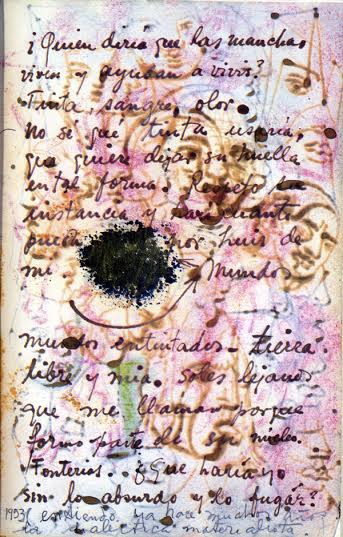 ¿Quien diría que las manchas
viven y ayudan a vivir?
Tinta, sangre, olor.
No sé qué tinta usaría,
que quiere dejar su huella
en tal forma. Respeto su
instancia y haré cuanto
pueda por huir de
mi Mundos
mundos entintados - tierra
libre y mia. soles lejanos
que me llaman porque
formo parte de su núcleo.
Tonterias. ¿Que haría yo
sin lo absurdo y lo fugáz?
1953 entiendo ya hace muchos años
la dialectica materialista